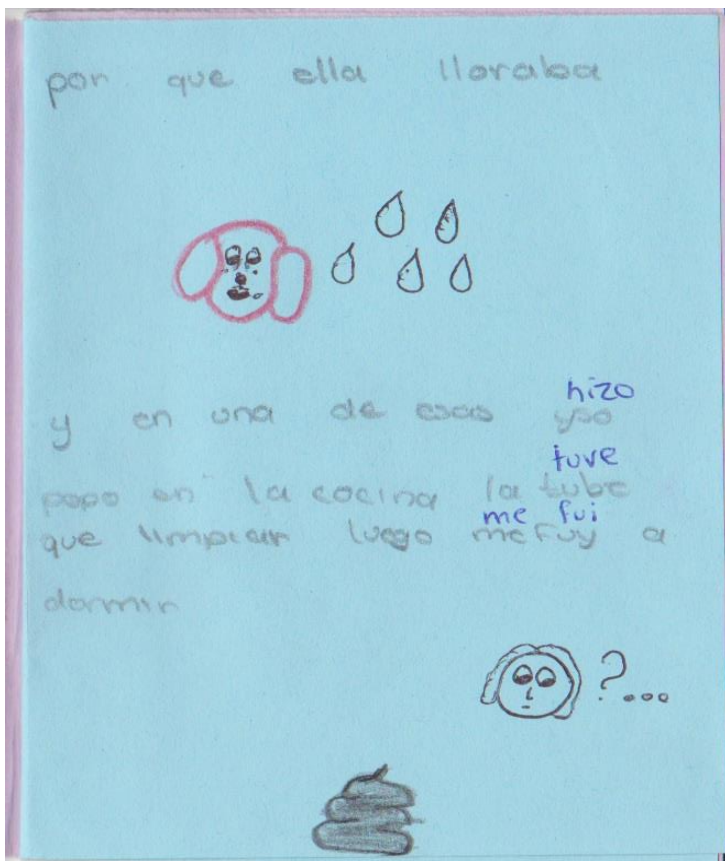 por que ella lloraba
hizo
y en una de esas yso
tuve
popo en la cocina la tube
me fui
que limpiar luego mefuy a
dormir
?...